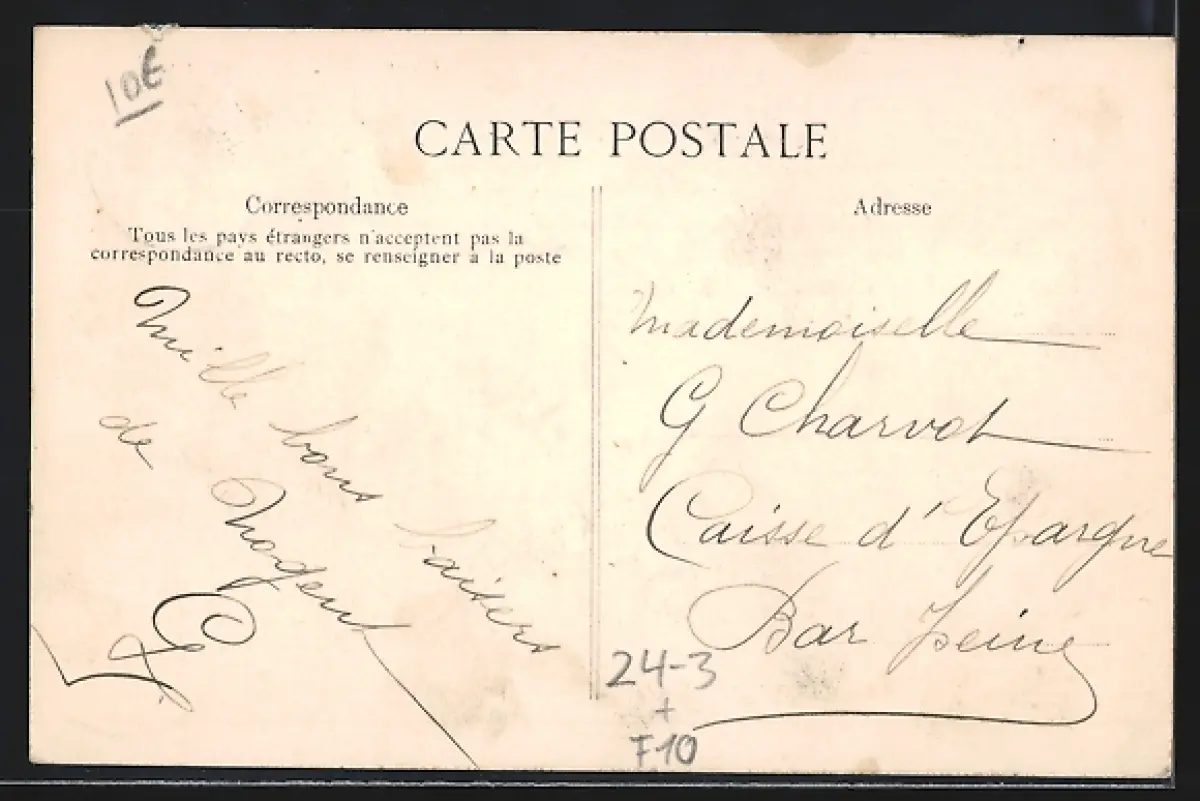 10€
CARTE POSTALE
Correspondance
Tous les pays étrangers n'acceptent pas la
correspondance au recto, se renseigner à la poste
Mille bons baisers
de Nogent
Adresse
Mademoiselle
G Charvot
Caisse d'Epargne
Bar Seine
24-3
+
F10